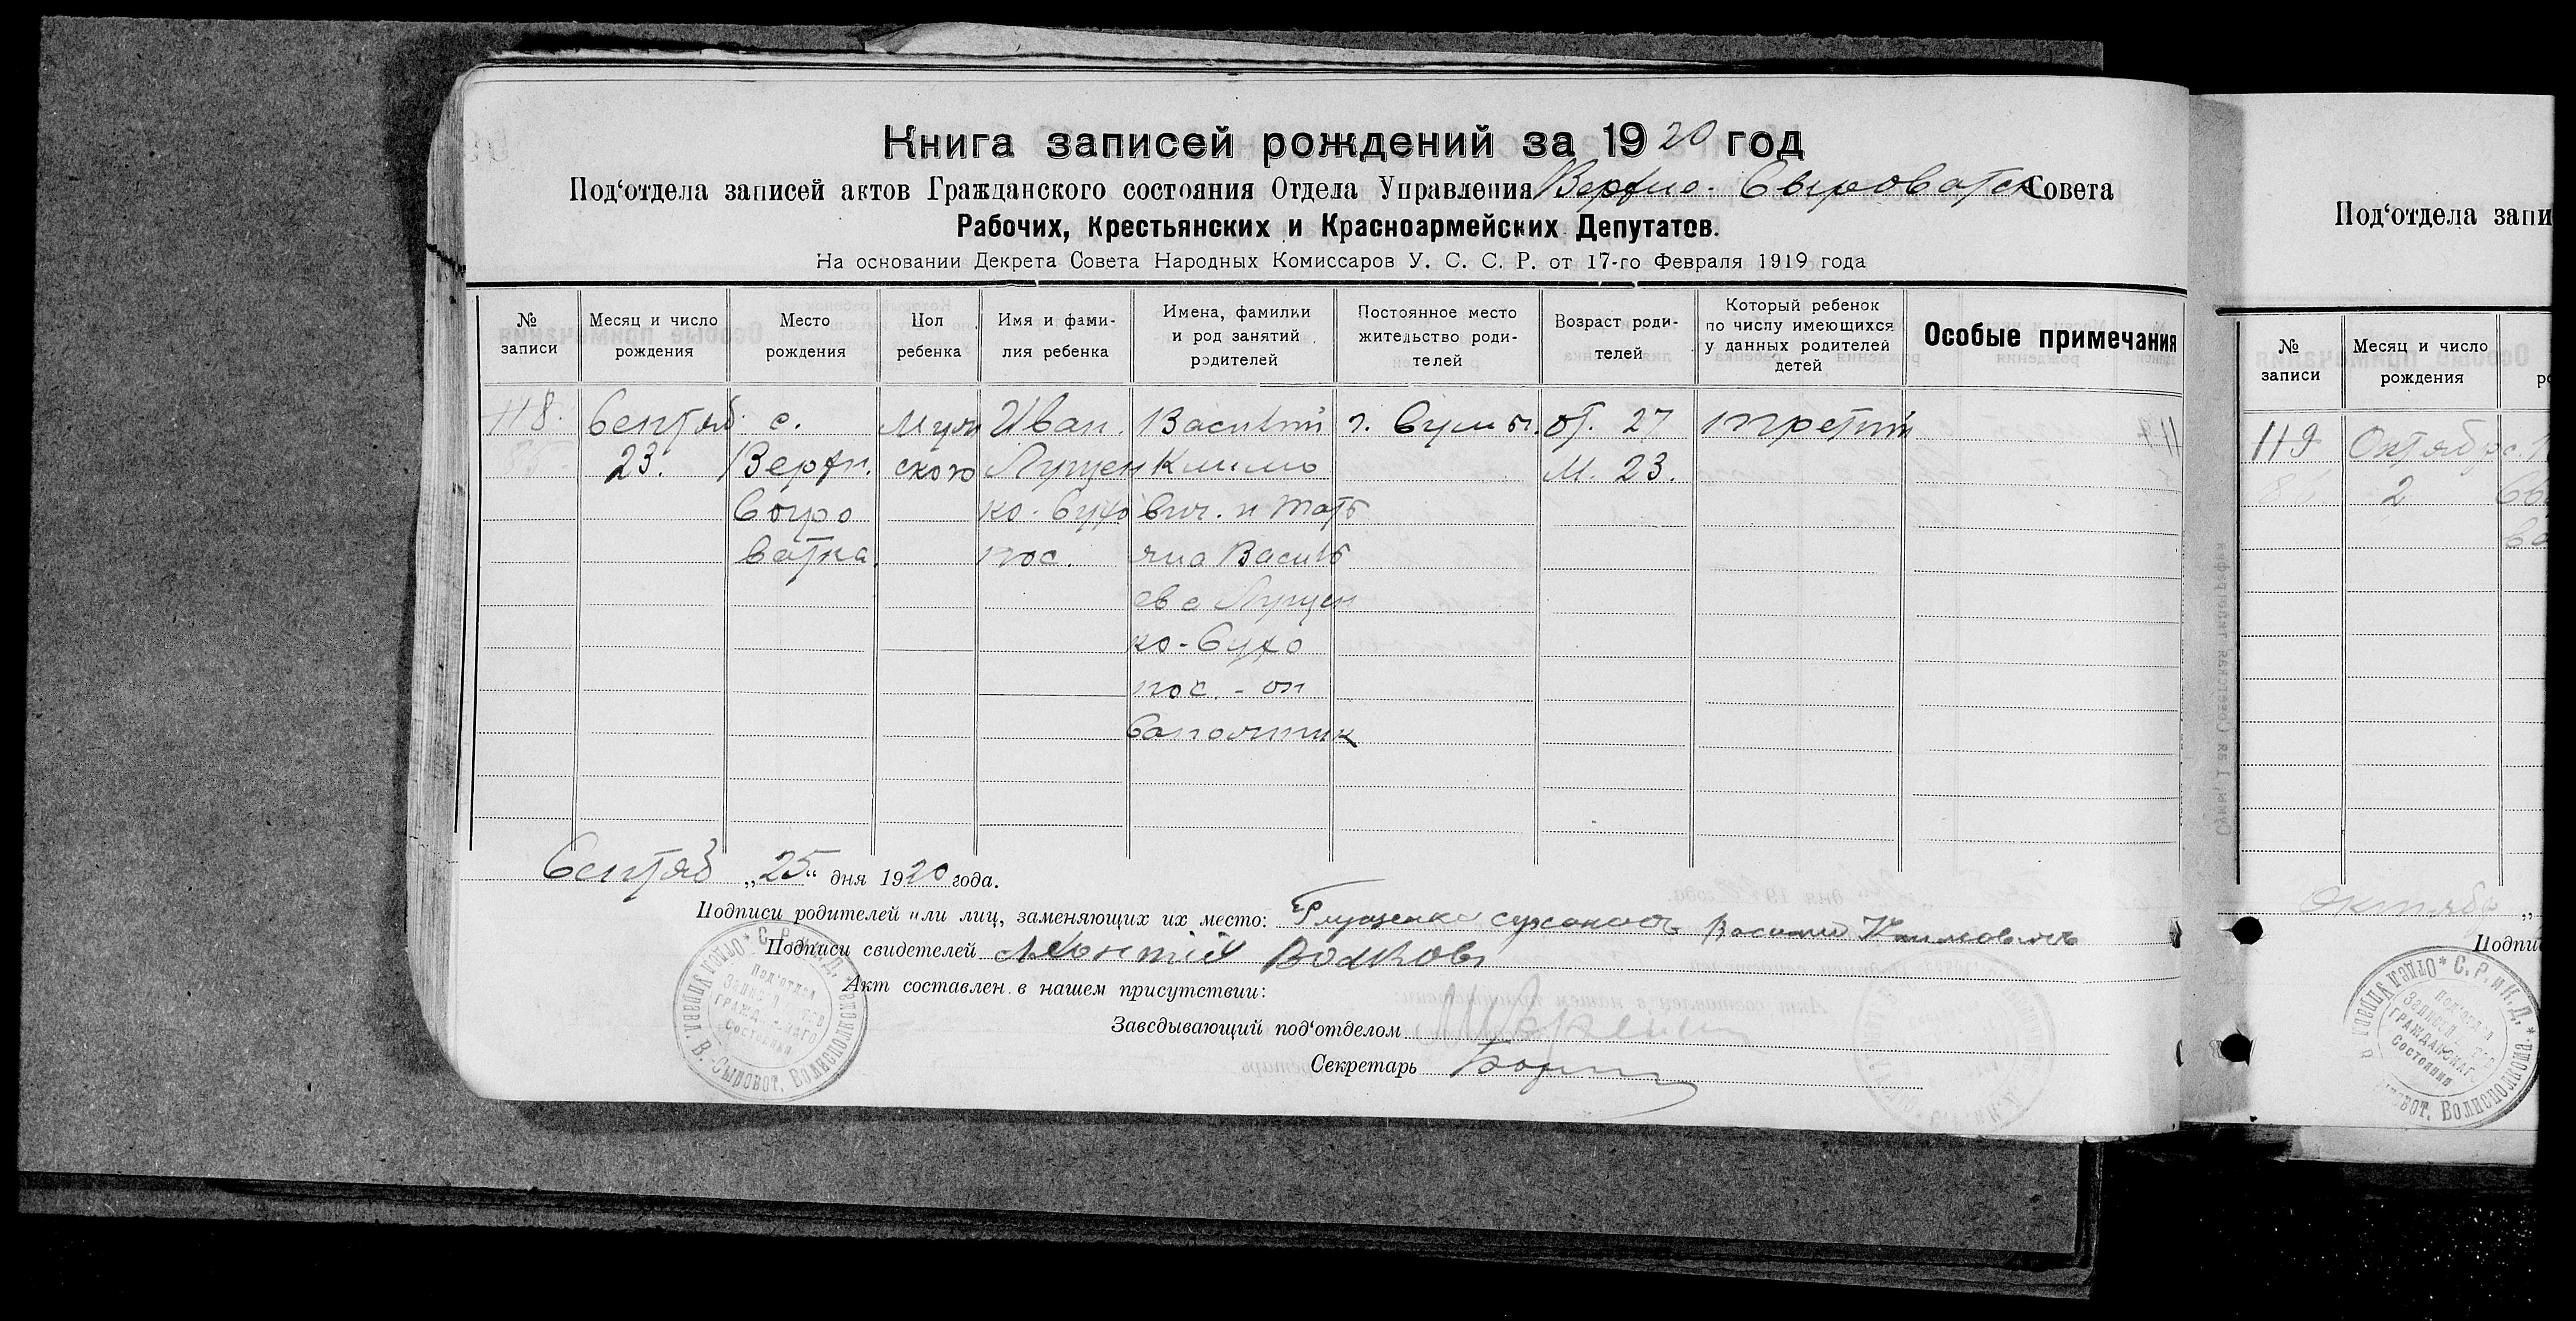 Книга записей рождений за 1920 год
Под‘отдела записей актов Гражданского состояния Отдела Управления Верхно-Сыроватск Совета
Рабочих, Крестьянских и Красноармейских Депутатов.
На основании Декрета Совета Народных Комиссаров У. С. С. Р. от 17-го Февраля 1919 года
№ записи
Месяц и число рождения
Место рождения
Пол ребенка
Имя и фами-
лия ребенка
Имена, фамилии
и род занятий
родителей
Постоянное место
жительство роди-
телей
Возраст роди-
телей
Который ребенок
по числу имеющихся
у данных родителей
детей
Особые примечания
118.
85.
Сентяб.
23.
с.
Верхн.
Сыро
ватка.
Муж
ского
Иван.
Лущен
ко-Сухо
нос.
Василий
Климо
вич. и Тать
яна Василь
ева Лущен
ко-Сухо
нос. - он
Сапожник
г. Сумы.
От. 27
М. 23.
третий
Сентяб „25“ дня 1920 года.
Подписи родителей или лиц, заменяющих их место: сухонос Василий Климович
Подписи свидетелей Леонтій Волков
Акт составлен в нашем присутствии:
Заведывающий под‘отделом
Секретарь
Под‘отдела запи
№ записи
Месяц и число
рождения
119
Октябр
2
Октября „
Подпи